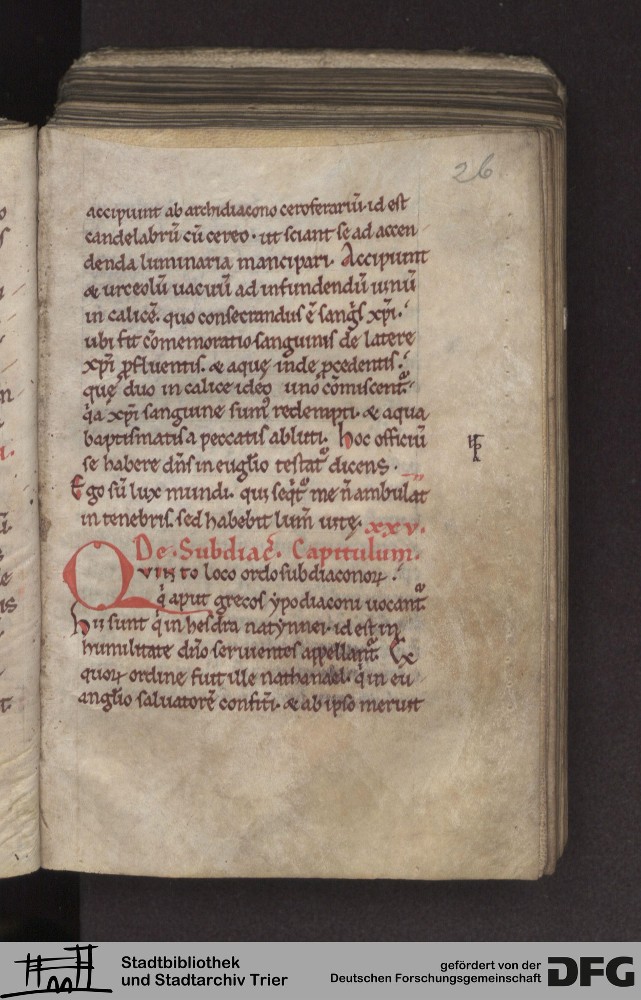 26
accipiunt ab archidiacono ceroferariū· id est
candelabrū cū cereo· ut sciant se ad accen
denda luminaria mancipari· Accipiunt
& urceolū uacuū ad infundendū uinū
in calicē· quo consecrandus ē sang̃s xp̄i·
ubi fit cōmemoratio sanguinis de latere
xp̄i ꝓfluentis· & aquę inde p̄cedentis·
quę duo in calice ideo uno cōmiscent᷑·
q̇a xp̄i sanguine sumꝰ redempti· & aqua
baptismatis a peccatis abluti· hoc officiū
se habere dn̄s in euglīo testat᷑ dicens·
Ego sū lux mundi· qui seq̇t᷑ me n̄ ambulat
in tenebris· sed habebit lum̄ uitę· xxv·
De· Subdiac̄· Capitulum·
QVINto loco ordo subdiaconoꝝ·
q̇ aput grecos ẏpodiaconi uocant᷑·
hii sunt q̇ in hesdra natẏnnei· id est in
humilitate dn̄o seruientes appellant᷑· Ex
quoꝝ ordine fuit ille nathanael· q̇ in eu
anglīo saluatorē confit᷑· & ab ipso meruit
Stadtbibliothek
und Stadtarchiv Trier
gefördert von der
Deutschen Forschungsgemeinschaft
DFG